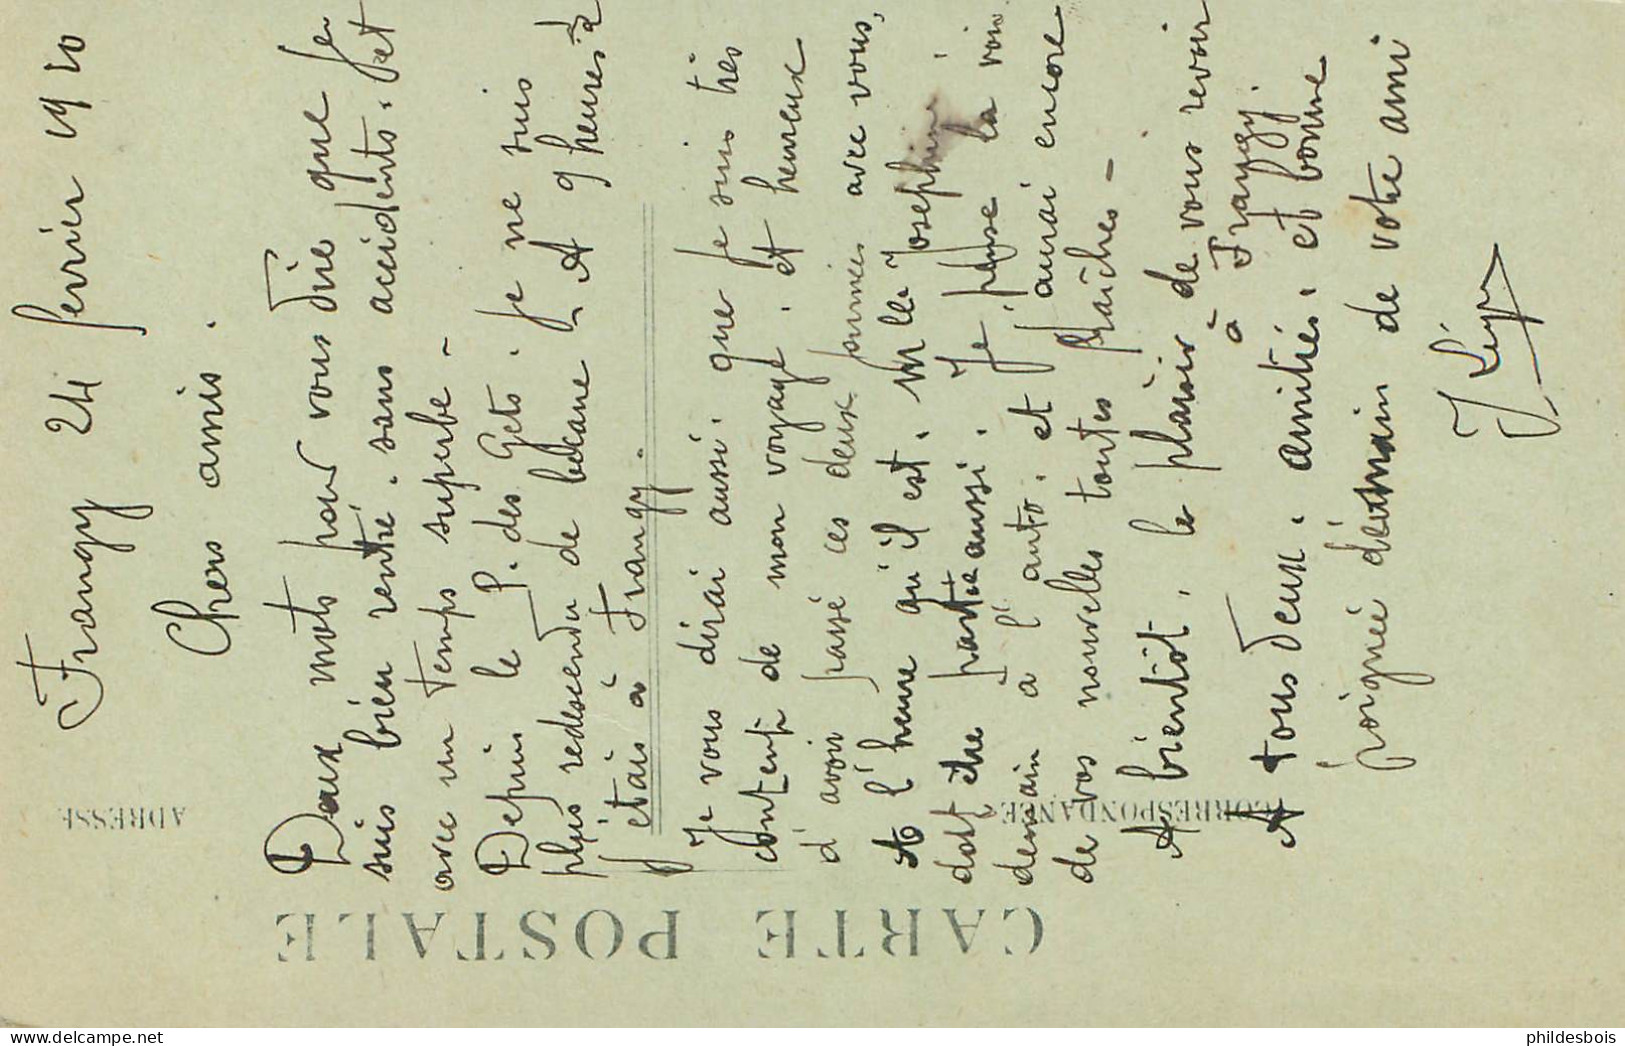 Frangy 24 fevrier 1910
Chers amis.
Deux mots pour vous dire que je
suis bien rentré. sans accidents. et
avec un temps superbe -
Depuis le P. des Gets. je ne suis
plus redescendu de bécane, A 9 heures ½
j'étais à Frangy.
Je vous dirai aussi. que je suis très
content de mon voyage. et heureux
d'avoir passé ces deux journées avec vous,
A l'heure qu'il est. Mlle Josephine
doit être partie aussi. Je pense la voir
demain à l'auto. et j'aurai encore
de vos nouvelles toutes fraîches -
A bientôt. le plaisir de vous revoir
à Frangy.
A tous deux. amitiés. et bonne
poignée de main de votre ami
J Léger
CARTE POSTALE
CORRESPONDANCE
ADRESSE
phildesbois